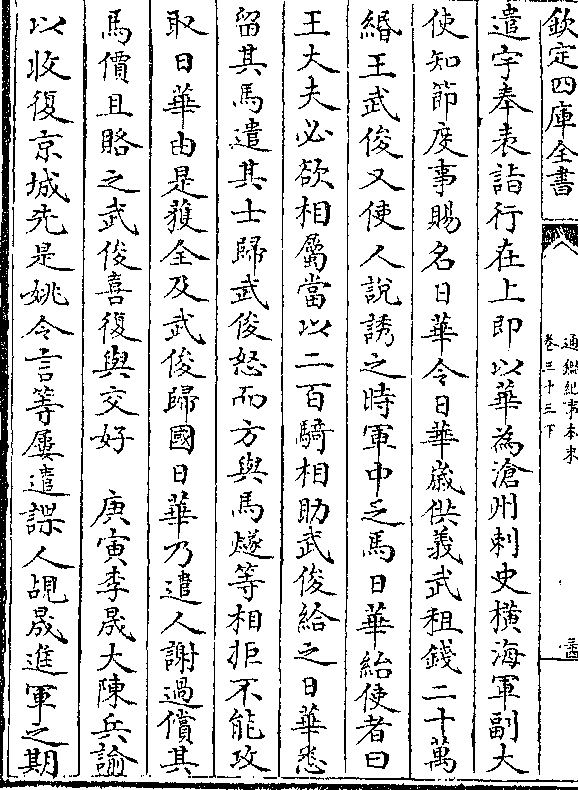 欽定四庫全書
通鑑紀事本末
卷三十三下
遣宇奉表詣行在上即以華為滄州刺史橫海軍副大
使知節度事賜名日華令日華歲供義武租錢二十萬
緡王武俊又使人說誘之時軍中乏馬日華紿使者曰
王大夫必欲相屬當以二百騎相助武俊給之日華悉
留其馬遣其士歸武俊怒而方與馬燧等相拒不能攻
取日華由是獲全及武俊歸國日華乃遣人謝過償其
馬價且賂之武俊喜復與交好　庚寅李晟大陳兵諭
以收復京城先是姚令言等屢遣諜人覘晟進軍之期